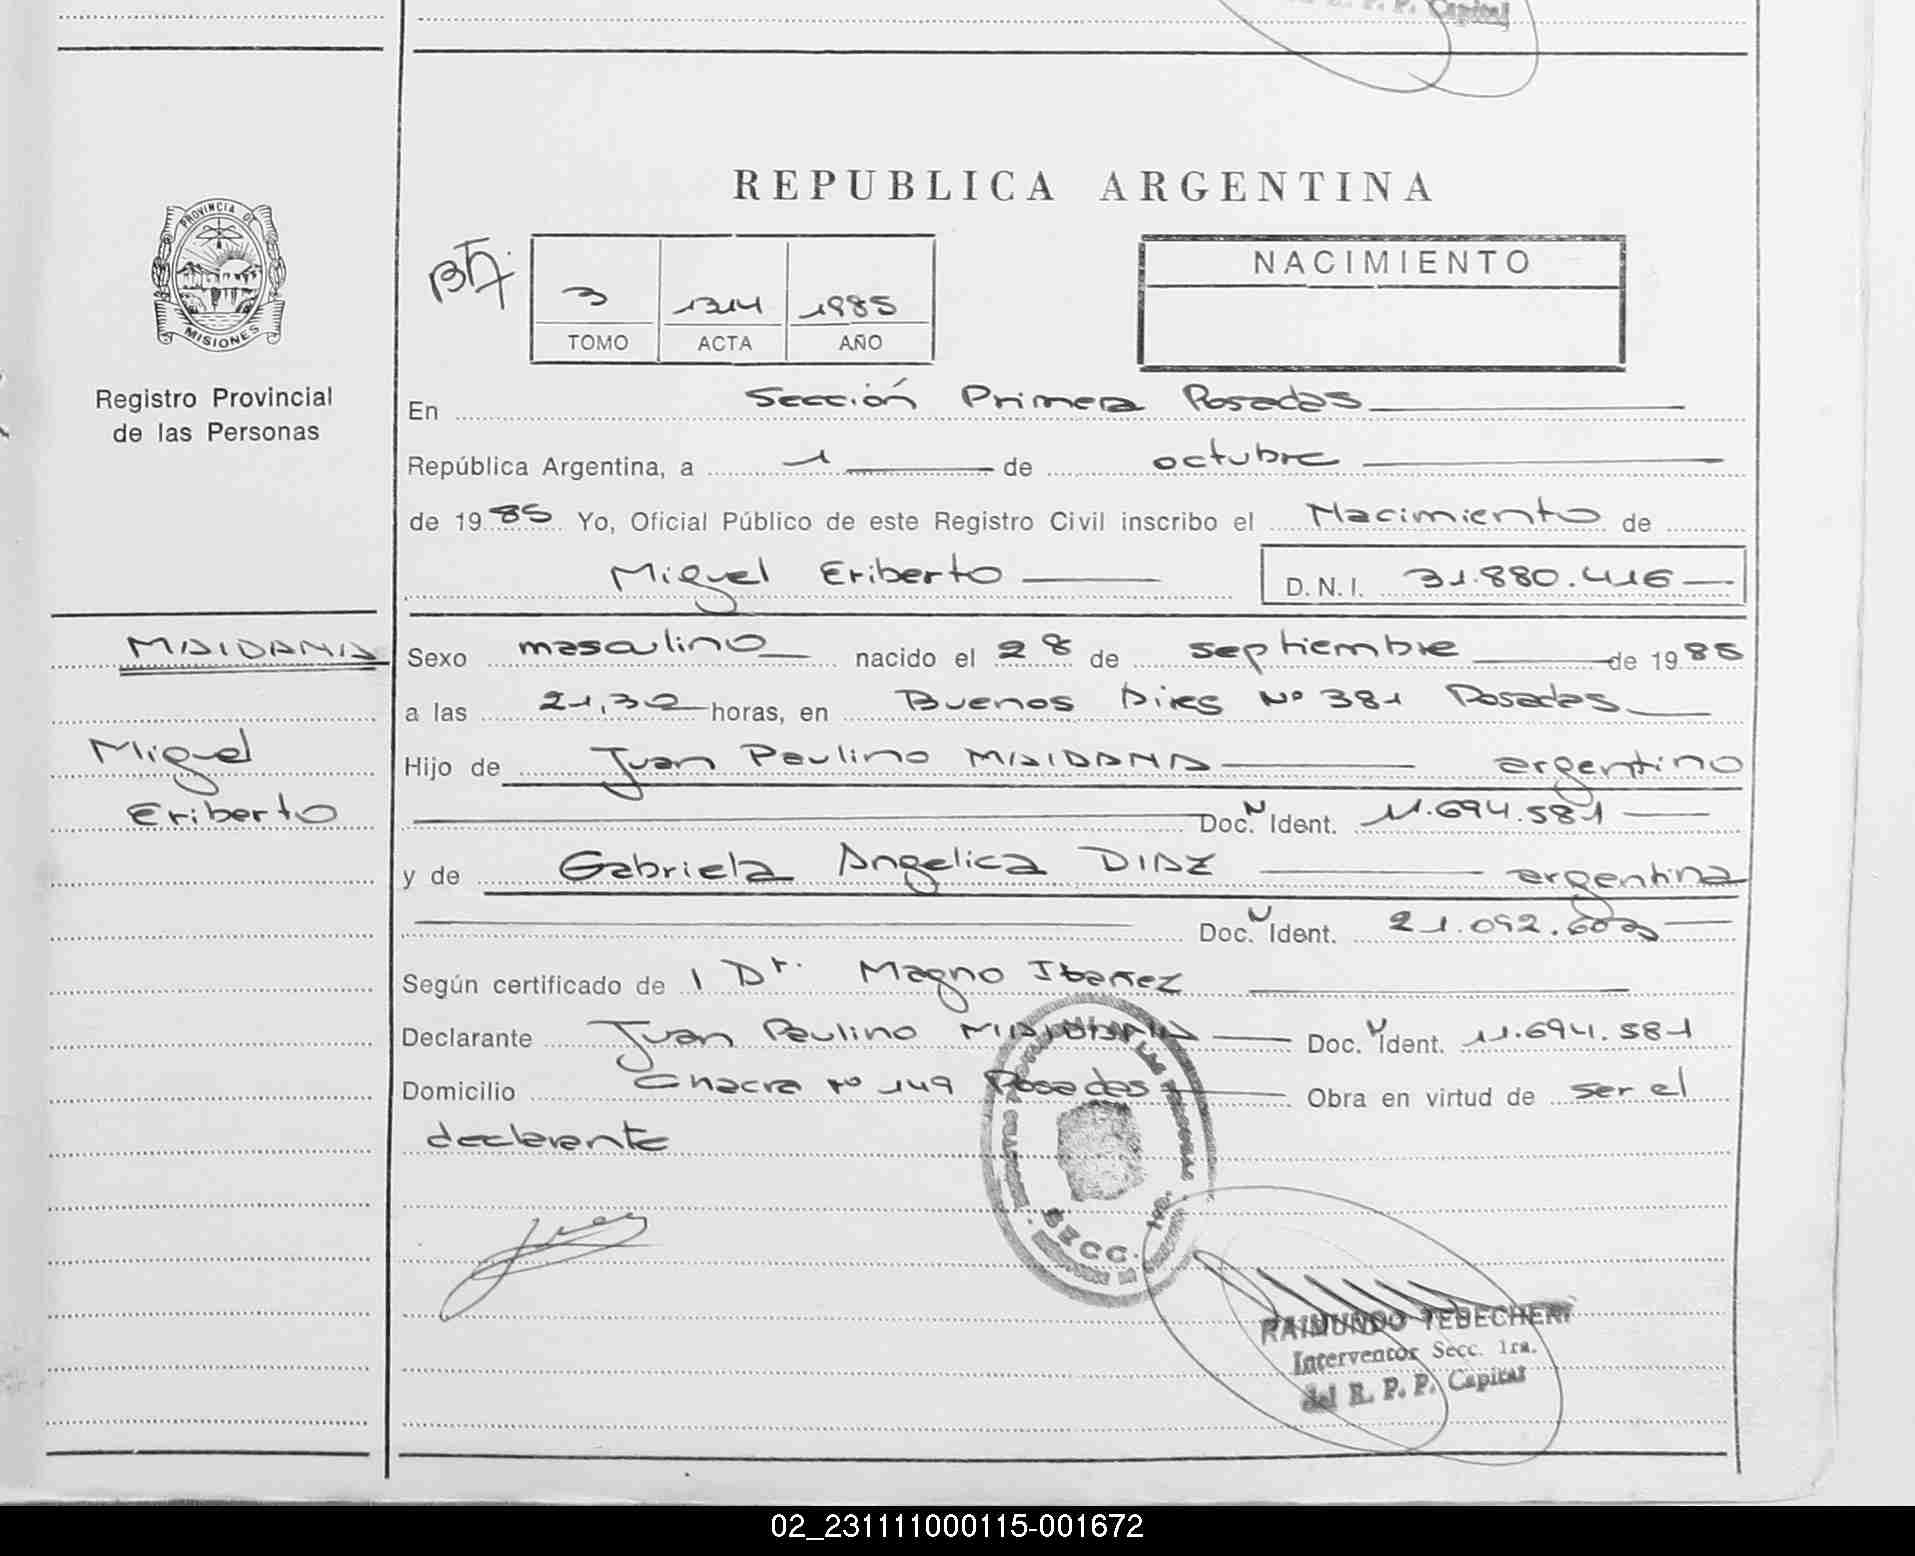 R. P. P. Capital
REPUBLICA ARGENTINA
PROVINCIA DE
MISIONES
Registro Provincial
de las Personas
3 1314 1985
TOMO ACTA AÑO
NACIMIENTO
En Sección Primera Posadas
República Argentina, a 1 de octubre
de 1985 Yo, Oficial Público de este Registro Civil inscribo el Nacimiento de
Miguel Eriberto D. N. I. 31.880.416
MAIDANA
Miguel
Eriberto
Sexo masculino nacido el 28 de septiembre de 1985
a las 21,30 horas, en Buenos Aires Nº 381 Posadas
Hijo de Juan Paulino MAIDANA argentino
Doc. N Ident. 11.694.581
y de Gabriela Angelica DIAZ argentina
Doc. N Ident. 21.092.603
Según certificado de 1 Dr. Magno Ibañez
Declarante Juan Paulino MAIDANA Doc. N Ident. 11.694.581
Domicilio Chacra Nº 149 Posadas Obra en virtud de ser el
declarante
LAS PERSONAS
SECC. 1ra.
RAIMUNDO TEBECHERI
Interventor Secc. 1ra.
del R. P. P. Capital
02_231111000115-001672